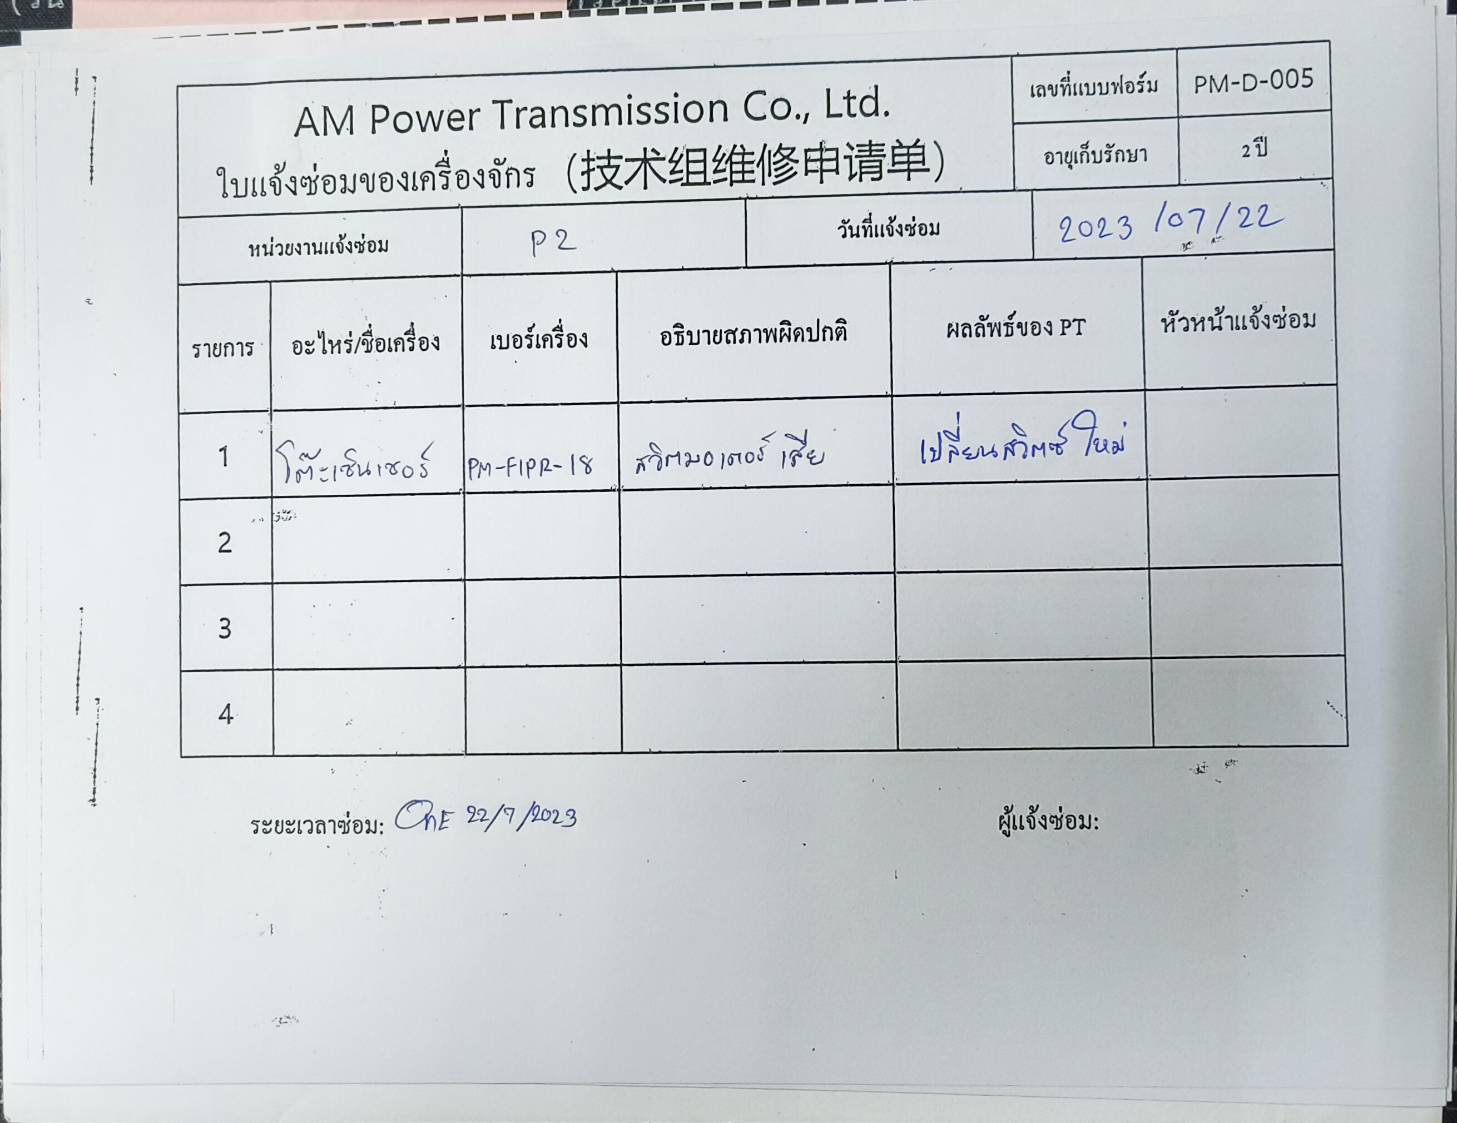 AM Power Transmission Co., Ltd.
ใบแจ้งซ่อมของเครื่องจักร (技术组维修申请单)
เลขที่แบบฟอร์ม PM-D-005
อายุเก็บรักษา 2 ปี
หน่วยงานแจ้งซ่อม P2 วันที่แจ้งซ่อม 2023/07/22
รายการ อะไหร่/ชื่อเครื่อง เบอร์เครื่อง อธิบายสภาพผิดปกติ ผลลัพธ์ของ PT หัวหน้าแจ้งซ่อม
1 โต๊ะเซ็นเซอร์ PM-FIPR-18 สวิตมอเตอร์ เสีย เปลี่ยนสวิตซ์ ใหม่
2
3
4
ระยะเวลาซ่อม: 22/7/2023 ผู้แจ้งซ่อม: